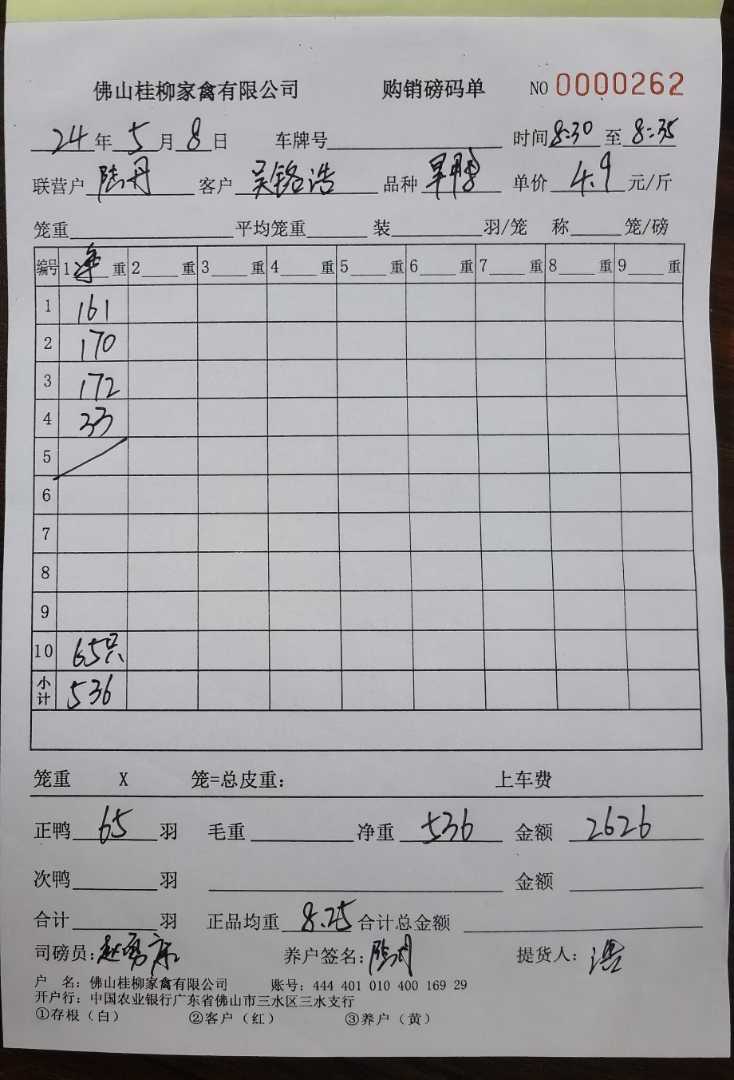 佛山桂柳家禽有限公司 购销磅码单 NO 0000262
24年5月8日 车牌号 时间8:30至8:35
联营户 陆丹 客户 吴铭浩 品种 单价 4.9 元/斤
笼重 平均笼重 装 羽/笼 称 笼/磅
编号 1净重 2 重 3 重 4 重 5 重 6 重 7 重 8 重 9 重
1 161
2 170
3 172
4 33
5
6
7
8
9
10 65只
小计 536
笼重 X 笼=总皮重: 上车费
正鸭 65 羽 毛重 净重 536 金额 2626
次鸭 羽 金额
合计 羽 正品均重 8.25 合计总金额
司磅员: 养户签名: 陆丹 提货人: 浩
户 名: 佛山桂柳家禽有限公司 账号: 444 401 010 400 169 29
开户行: 中国农业银行广东省佛山市三水区三水支行
①存根(白) ②客户(红) ③养户(黄)